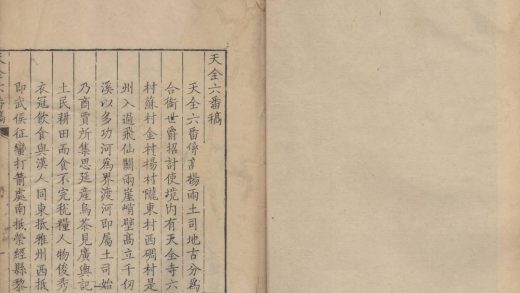 天全六番稿
天全六番係高楊兩土司地古分爲
合銜世爵招討使境内有天全寺六
村蘇村金村楊村隴東村西碉村是
州入邏飛仙關兩崖峭壁高立千仞
溪以多功河爲界渡河即屬土司始
乃商賈所集思延產烏茶見廣輿記
土民耕田而食不完稅糧人物俊秀
衣冠飲食與漢人同東抵雅州西抵
即武侯征蠻打箭處南抵滎經縣黎
天全六番稿